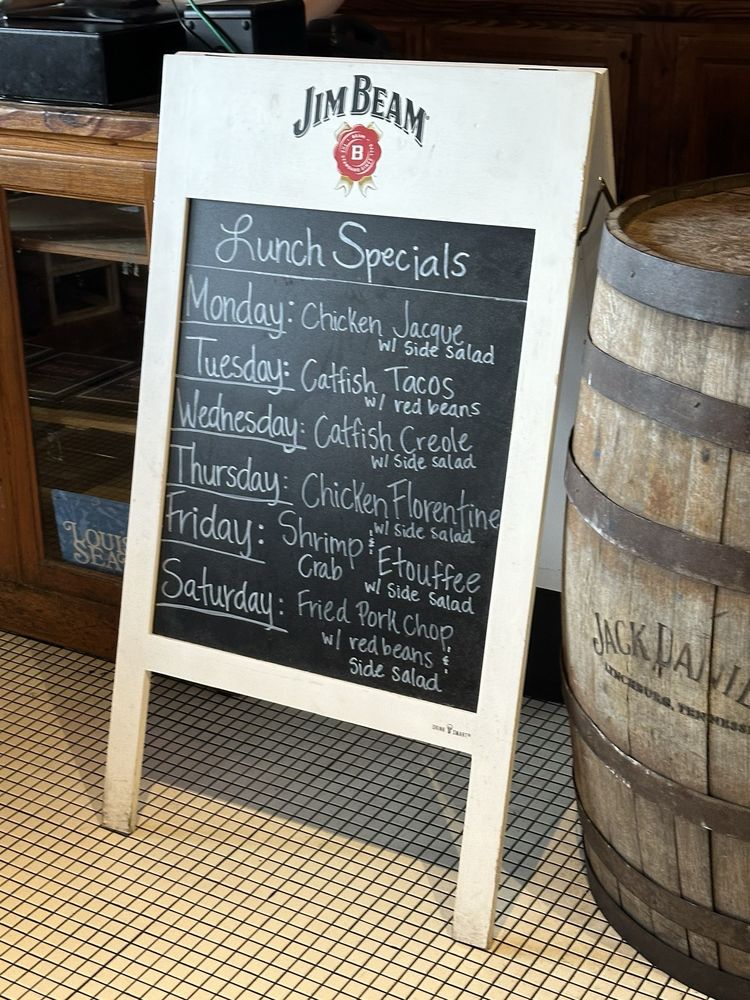 JIM BEAM
B
Lunch Specials
Monday: Chicken Jacque
w/ side salad
Tuesday: Catfish Tacos
w/ red beans
Wednesday: Catfish Creole
w/ side salad
Thursday: Chicken Florentine
w/ side salad
Friday: Shrimp & Crab Etouffee
w/ side salad
Saturday: Fried Pork Chop
w/ red beans &
side salad
DRINK SMART
JACK DANI
LYNCHBURG, TENNESS
LOUI
SEA